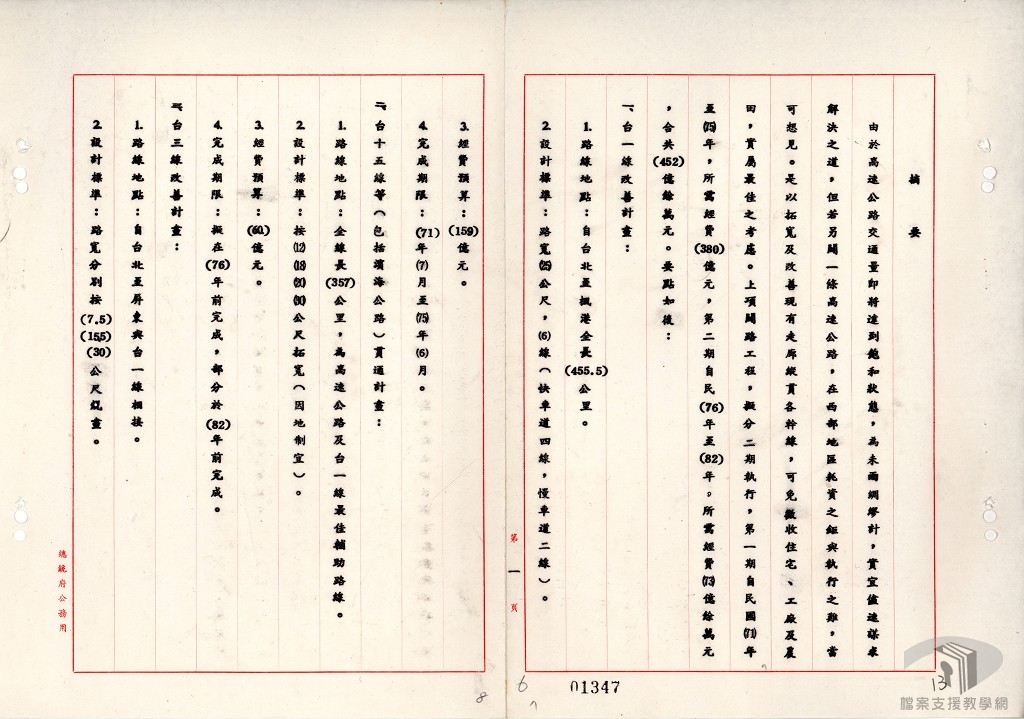 摘要
由於高速公路交通量即將達到飽和狀態，為未雨綢繆計，實宜儘速謀求
解決之道，但若另闢一條高速公路，在西部地區耗資之鉅與執行之難，當
可想見。是以拓寬及改善現有走廊縱貫各幹線，可免徵收住宅、工廠及農
田，實屬最佳之考慮。上項闢路工程，擬分二期執行，第一期自民國(71)年
至(75)年，所需經費(380)億元，第二期自民(76)年至(82)年。所需經費(73)億餘萬元
，合共(452)億餘萬元。要點如後：
一、台一線改善計畫：
1. 路線地點：自台北至楓港全長(455.5)公里。
2. 設計標準：路寬(25)公尺，(6)線（快車道四線，慢車道二線）。
3. 經費預算：(159)億元。
4. 完成期限：(71)年(7)月至(75)年(6)月。
二、台十五線等（包括濱海公路）貫通計畫：
1. 路線地點：全線長(357)公里，為高速公路及台一線最佳輔助路線。
2. 設計標準：按(12)(18)(20)(30)公尺拓寬（因地制宜）。
3. 經費預算：(60)億元。
4. 完成期限：擬在(76)年前完成，部分於(82)年前完成。
三、台三線改善計畫：
1. 路線地點：自台北至屏東與台一線相接。
2. 設計標準：路寬分別按(7.5)(15.5)(30)公尺規畫。
第一頁
總統府公務用
01347
6
8
13
檔案支援教學網